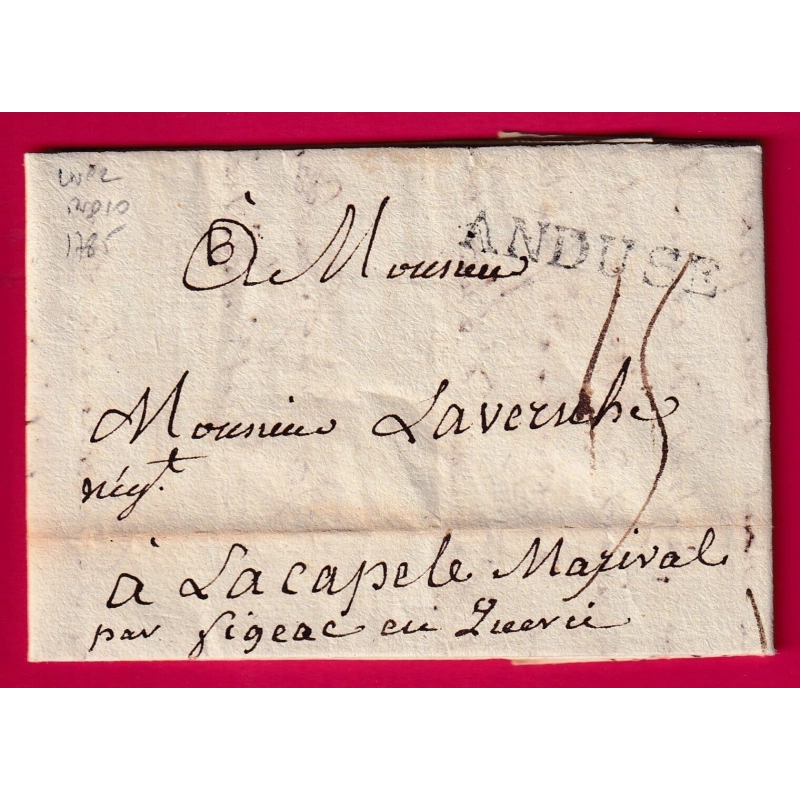 1785
B
ANDUSE
à Monsieur
15
Monsieur Lavernhe
négt.
à Lacapele Marival
par figeac en Querci